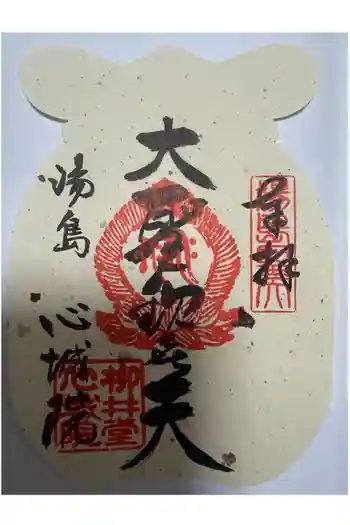 奉拝
大聖歓喜天
湯島
心城院
柳井堂
心城院